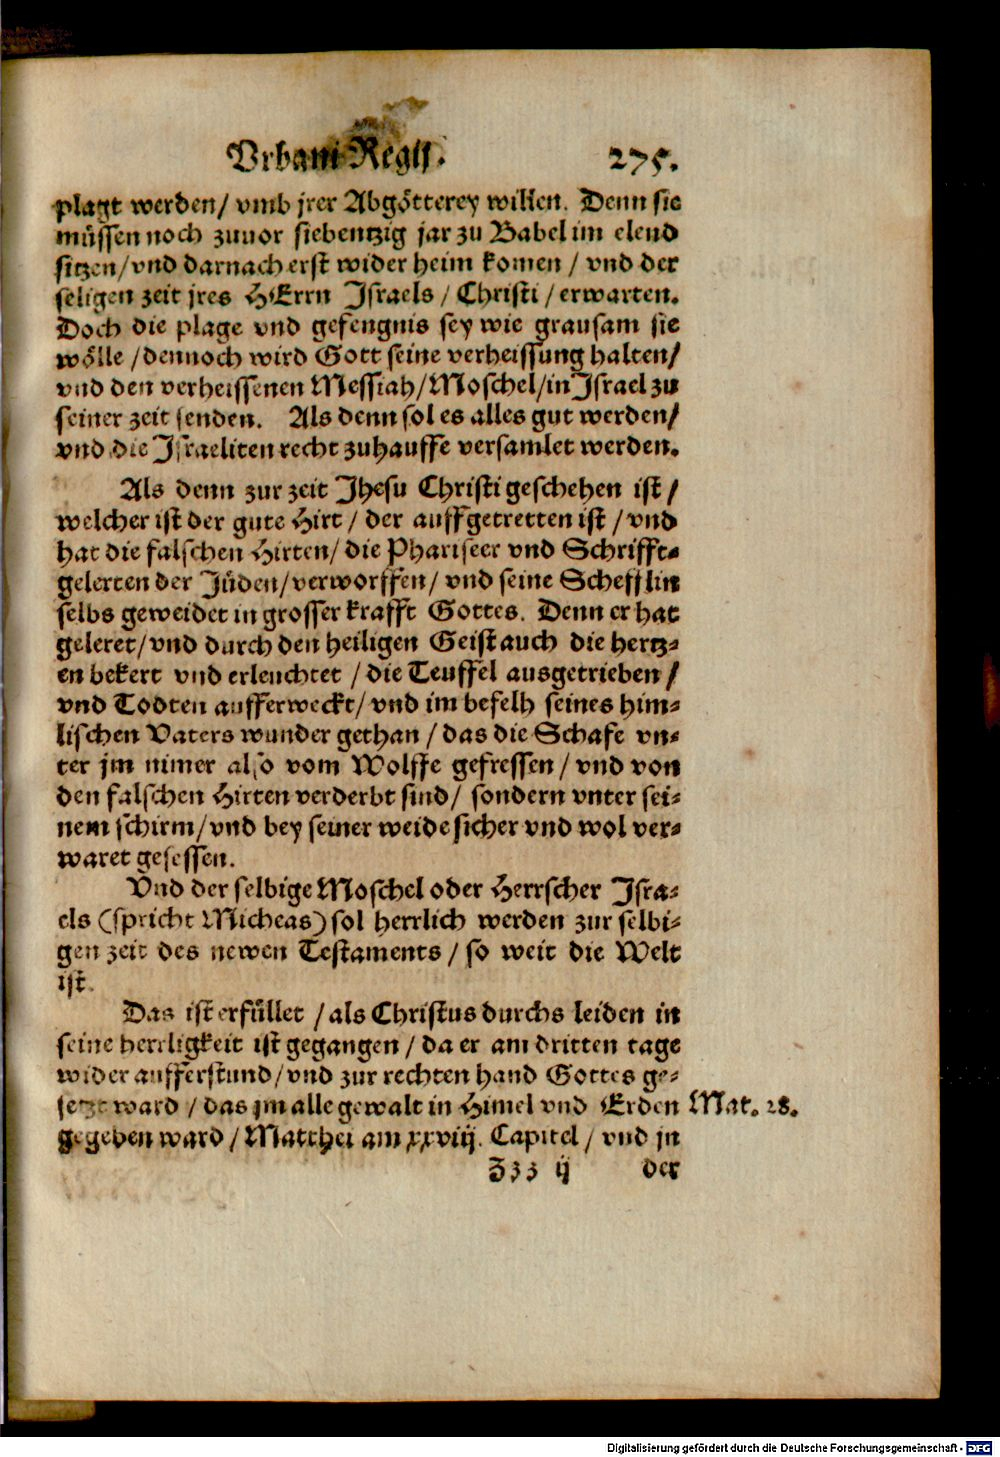 Vrbani Regij. 275.
plagt werden/ vmb jrer Abgötterey willen. Denn sie
müssen noch zuuor siebentzig jar zu Babel im elend
sitzen/vnd darnach erst wider heim komen / vnd der
seligen zeit jres HErrn Jsraels / Christi / erwarten.
Doch die plage vnd gefengnis sey wie grausam sie
wölle /dennoch wird Gott seine verheissung halten/
vnd den verheissenen Messiah/Moschel/in Jsrael zu
seiner zeit senden. Als denn sol es alles gut werden/
vnd die Jsraeliten recht zuhauffe versamlet werden.
Als denn zur zeit Jhesu Christi geschehen ist /
welcher ist der gute Hirt / der auffgetretten ist / vnd
hat die falschen Hirten/ die Phariseer vnd Schrifft-
gelerten der Jüden/verworffen/ vnd seine Schefflin
selbs geweidet in grosser krafft Gottes. Denn er hat
geleret/vnd durch den heiligen Geist auch die hertz-
en bekert vnd erleuchtet / die Teuffel ausgetrieben /
vnd Todten aufferweckt/ vnd im befelh seines him-
lischen Vaters wunder gethan / das die Schafe vn-
ter jm nimer also vom Wolffe gefressen / vnd von
den falschen Hirten verderbt sind/ sondern vnter sei-
nem schirm/vnd bey seiner weide sicher vnd wol ver-
waret gesessen.
Vnd der selbige Moschel oder Herrscher Jsra-
els (spricht Micheas) sol herrlich werden zur selbi-
gen zeit des newen Testaments / so weit die Welt
ist.
Das ist erfüllet / als Christus durchs leiden in
seine herrligkeit ist gegangen / da er am dritten tage
wider aufferstund/vnd zur rechten hand Gottes ge-
setzt ward / das jm alle gewalt in Himel vnd Erden Mat. 28.
gegeben ward / Matthei am xxviij. Capitel / vnd in
Zzz ij der
Digitalisierung gefördert durch die Deutsche Forschungsgemeinschaft - DFG